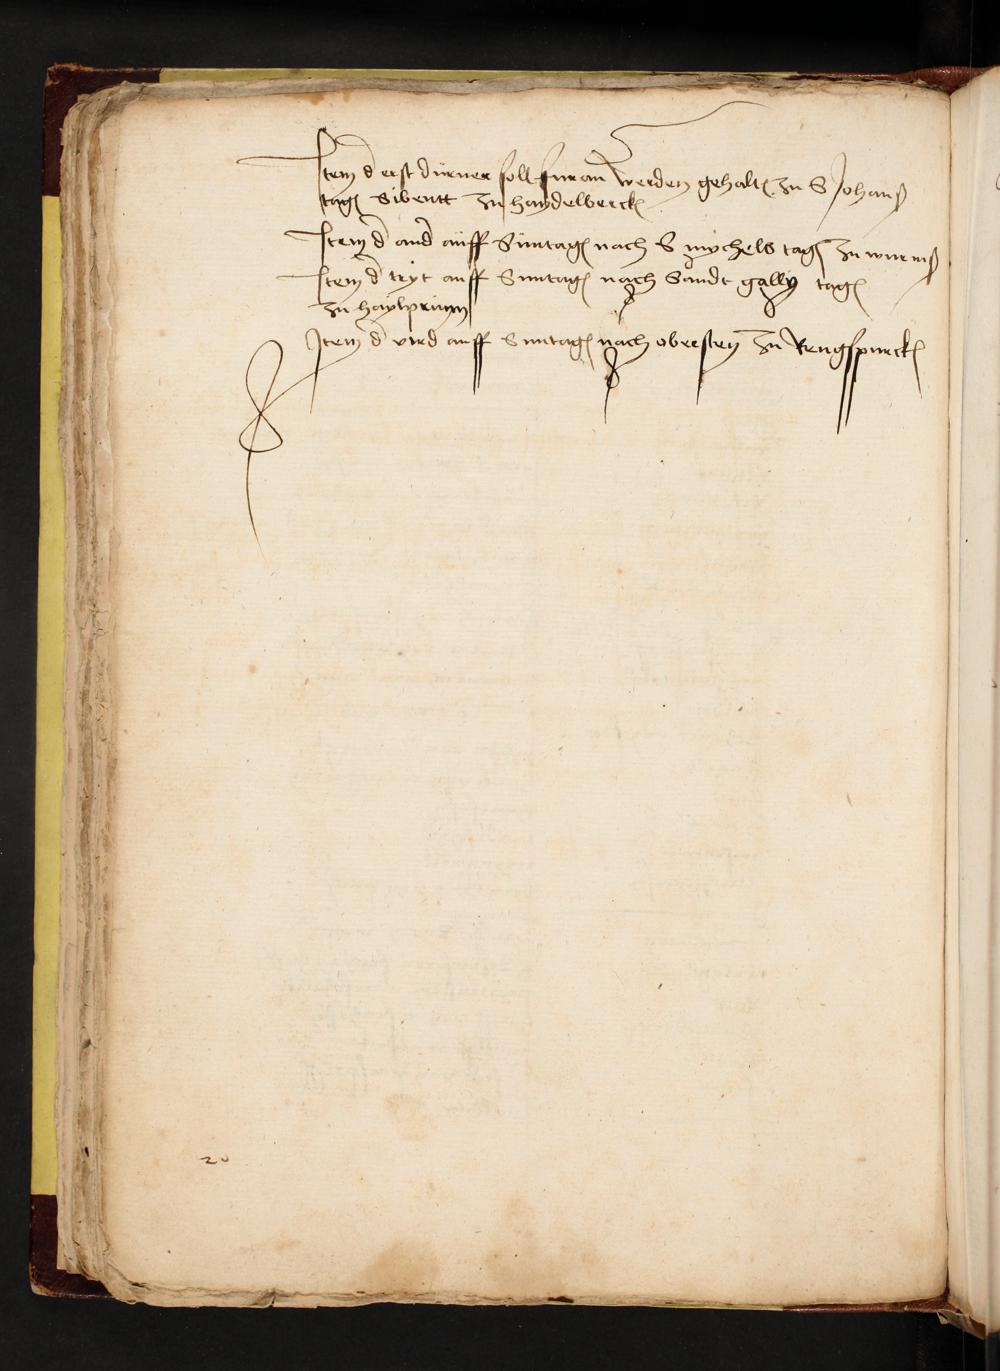 Item d erst dürner soll furan werden gehaltē zu S Johanß
tag sibentt zu haydelberck
Item d and aüff Süntag nach S mychels tag zu wurmß
Item d tryt auff Sunntag nach Sandt gally tag
zu haylprünn
Item d vird auff Sunntag nach obersten zu Rengspurck
20